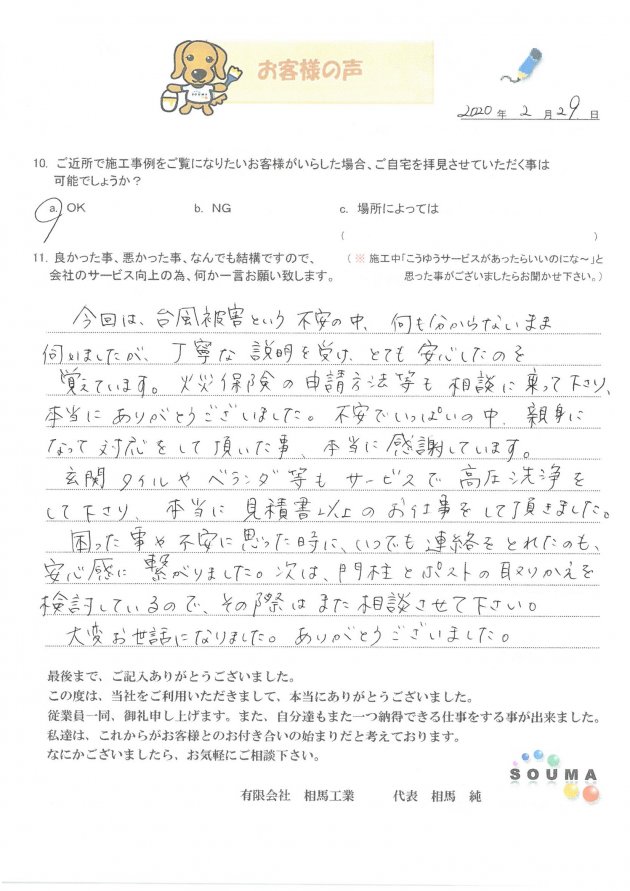 お客様の声
SOUMA
2020年 2月 29日
10. ご近所で施工事例をご覧になりたいお客様がいらした場合、ご自宅を拝見させていただく事は
可能でしょうか？
a. OK b. NG c. 場所によっては
( )
11. 良かった事、悪かった事、なんでも結構ですので、 （ ※ 施工中「こうゆうサービスがあったらいいのにな～」と
会社のサービス向上の為、何か一言お願い致します。 思った事がございましたらお聞かせ下さい。）
今回は、台風被害という不安の中、何も分からないまま
伺いましたが、丁寧な説明を受け、とても安心したのを
覚えています。火災保険の申請方法等も相談に乗って下さり、
本当にありがとうございました。不安でいっぱいの中、親身に
なって対応をして頂いた事、本当に感謝しています。
玄関タイルやベランダ等もサービスで高圧洗浄を
して下さり、本当に見積書以上のお仕事をして頂きました。
困った事や不安に思った時に、いつでも連絡をとれたのも、
安心感に繋がりました。次は、門柱とポストの取りかえを
検討しているので、その際はまた相談させて下さい。
大変お世話になりました。ありがとうございました。
最後まで、ご記入ありがとうございました。
この度は、当社をご利用いただきまして、本当にありがとうございました。
従業員一同、御礼申し上げます。また、自分達もまた一つ納得できる仕事をする事が出来ました。
私達は、これからがお客様とのお付き合いの始まりだと考えております。
なにかございましたら、お気軽にご相談下さい。
SOUMA
有限会社 相馬工業 代表 相馬 純